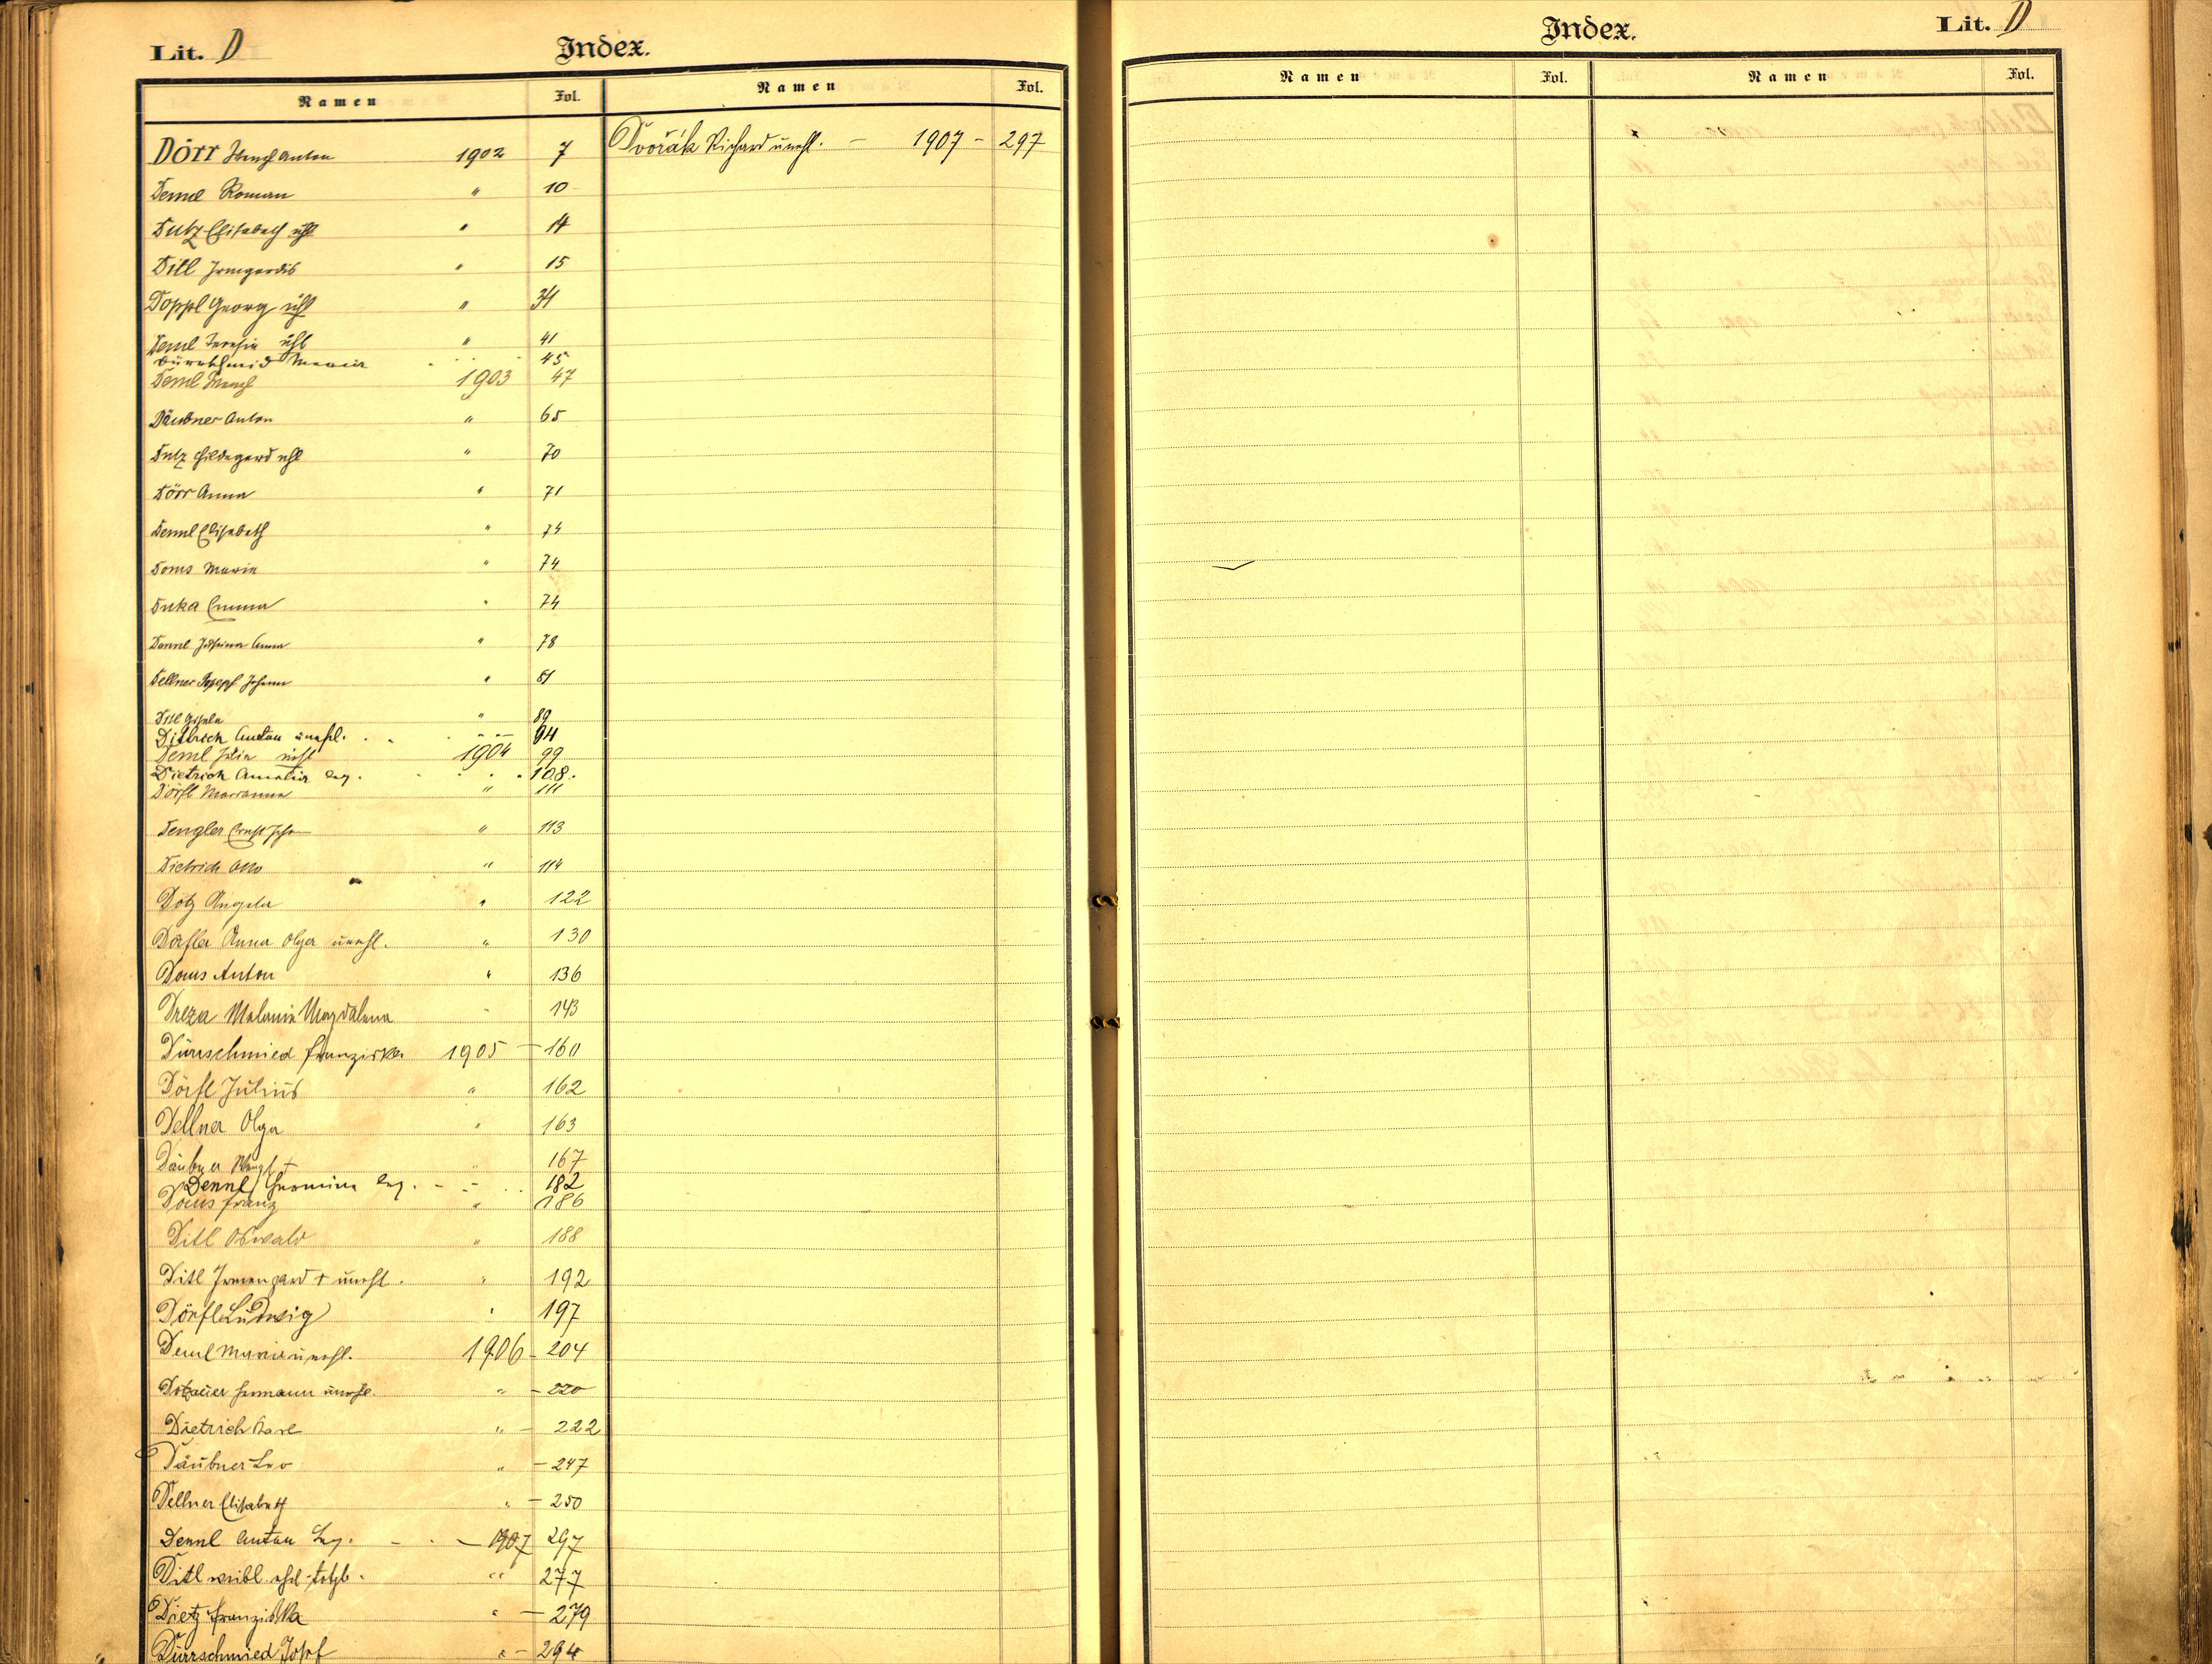 Lit. D
Index.
Namen Fol. Namen Fol.
Dörr Wenzl Anton 1902 7
Deml Roman " 10
Dutz Elisabeth uhl " 14
Ditl Irmgardis " 15
Doppl Georg uhl " 34
Deml Theresia uhl " 41
Dürrschmid Maria 45
Deml Wenzl 1903 47
Däubner Anton " 65
Dutz Hildegard uhl " 70
Dörr Anna " 71
Denml Elisabeth " 74
Doms Maria " 74
Duka Emma " 74
Denml Anna " 78
Dellner Josepf Johann " 81
Ditl Gisela " 89
Dittrich Anton unehl. 94
Deml Julia uehl 1904 99
Dietrich Amalia leg. 108.
Dörfl Marianna " 111
Dengler Ernst Joh " 113
Dietrich Otto " 114
Dötz Angela " 122
Dörfler Anna Olga unehl. " 130
Doms Anton " 136
Dreza Melanie Magdalena " 143
Dürrschmied Franziska 1905 - 160
Dörfl Julius " 162
Dellner Olga " 163
Däubner Wenzl + " 167
Dennl Hermine leg. - 182
Doms Franz " 186
Ditl Oswald " 188
Ditl Irmengard + unehl. " 192
Dörfl Ludwig " 197
Deml Maria unehl. 1906 - 204
Dotzauer Hermann unehl. " - 220
Dietrich Karl " - 222
Däubner Leo " - 247
Dellner Elisabeth " - 250
Dennl Anton Leg. - 1907 297
Ditl weibl. ehel. totgb. " 277
Dietz Franziska " - 279
Dürrschmied Josef " - 294
Dvořák Richard unehl. - 1907 - 297
Index.
Lit. D
Namen Fol. Namen Fol.